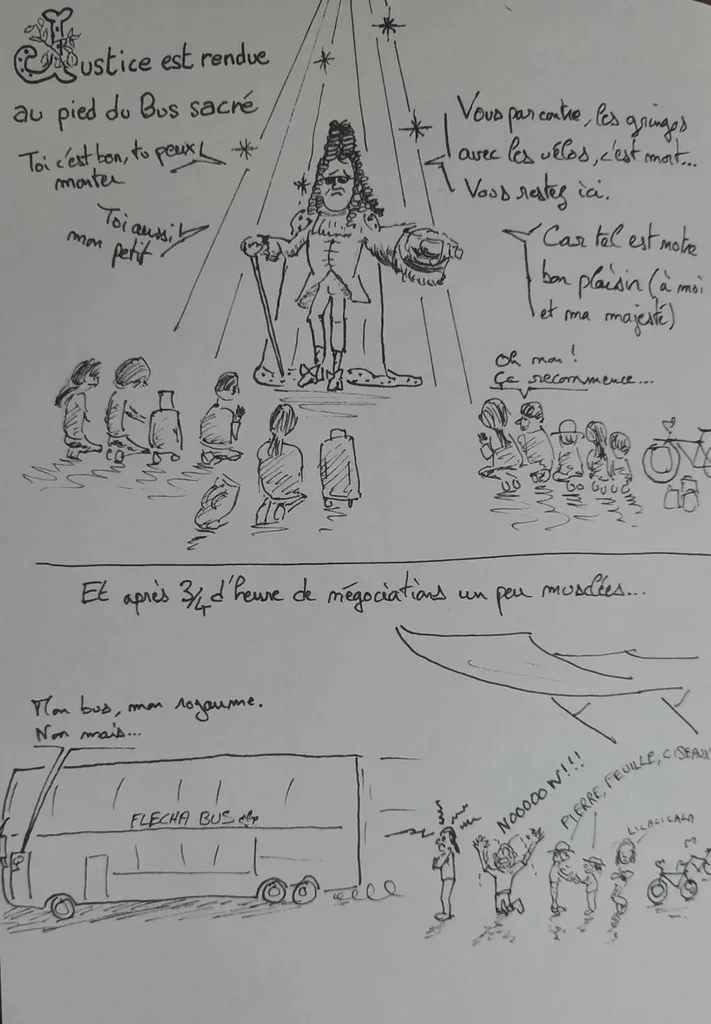 Justice est rendue
au pied du Bus sacré
Toi c'est bon, tu peux
monter
Toi aussi!
mon petit
Vous par contre, les gringos
avec les vélos, c'est mort...
Vous restez ici.
Car tel est notre
bon plaisir (à moi
et ma majesté)
Oh non!
Ça recommence...
Et après 3/4 d'heure de négociations un peu musclées...
Mon bus, mon royaume.
Non mais...
FLECHA BUS
NOOOOON!!!
PIERRE, FEUILLE, CISEAUX
LILACILALA